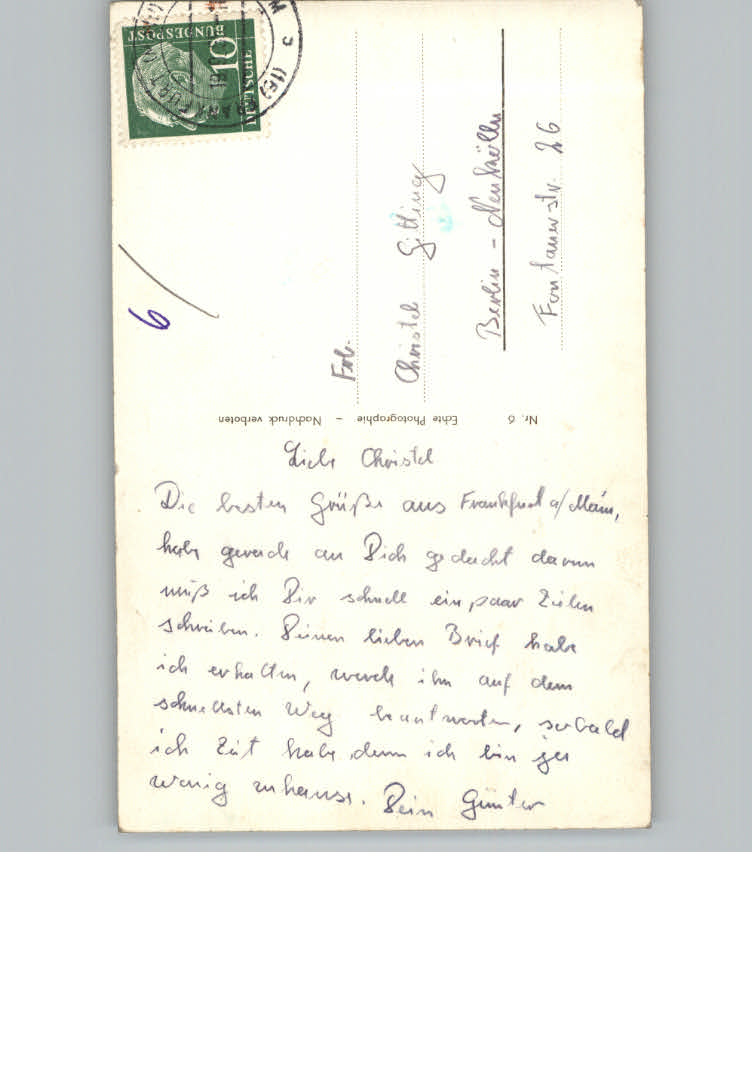 DEUTSCHE
BUNDESPOST
10
6
Frl.
Christel Gittling
Berlin - Neukölln
Fontanestr. 26
Nr. 6 Echte Photographie – Nachdruck verboten
Liebe Christel
Die besten Grüße aus Frankfurt a/Main,
habe gerade an Dich gedacht darum
muß ich Dir schnell ein paar Zeilen
schreiben. Deinen lieben Brief habe
ich erhalten, werde ihn auf dem
schnellsten Weg beantworten, sobald
ich Zeit habe denn ich bin ja
wenig zuhause. Dein Günter